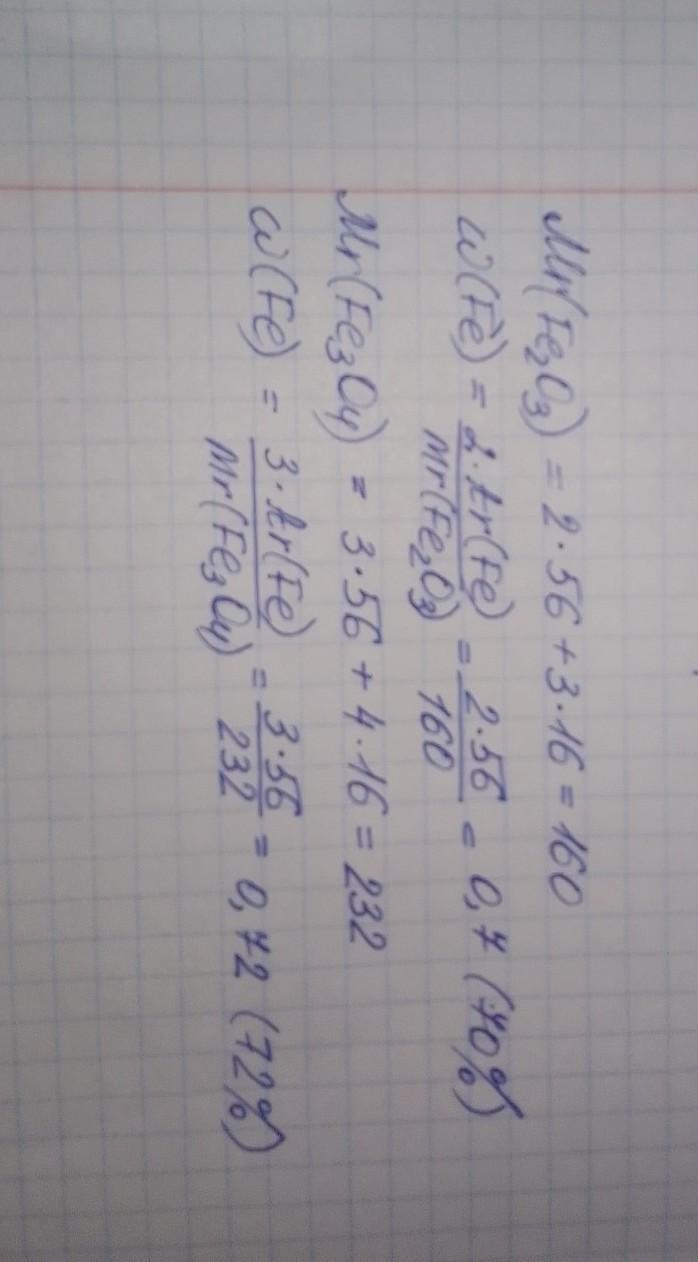 Mr(Fe₂O₃) = 2·56 + 3·16 = 160
ω(Fe) = 2·Ar(Fe)/Mr(Fe₂O₃) = 2·56/160 = 0,7 (70%)
Mr(Fe₃O₄) = 3·56 + 4·16 = 232
ω(Fe) = 3·Ar(Fe)/Mr(Fe₃O₄) = 3·56/232 = 0,72 (72%)